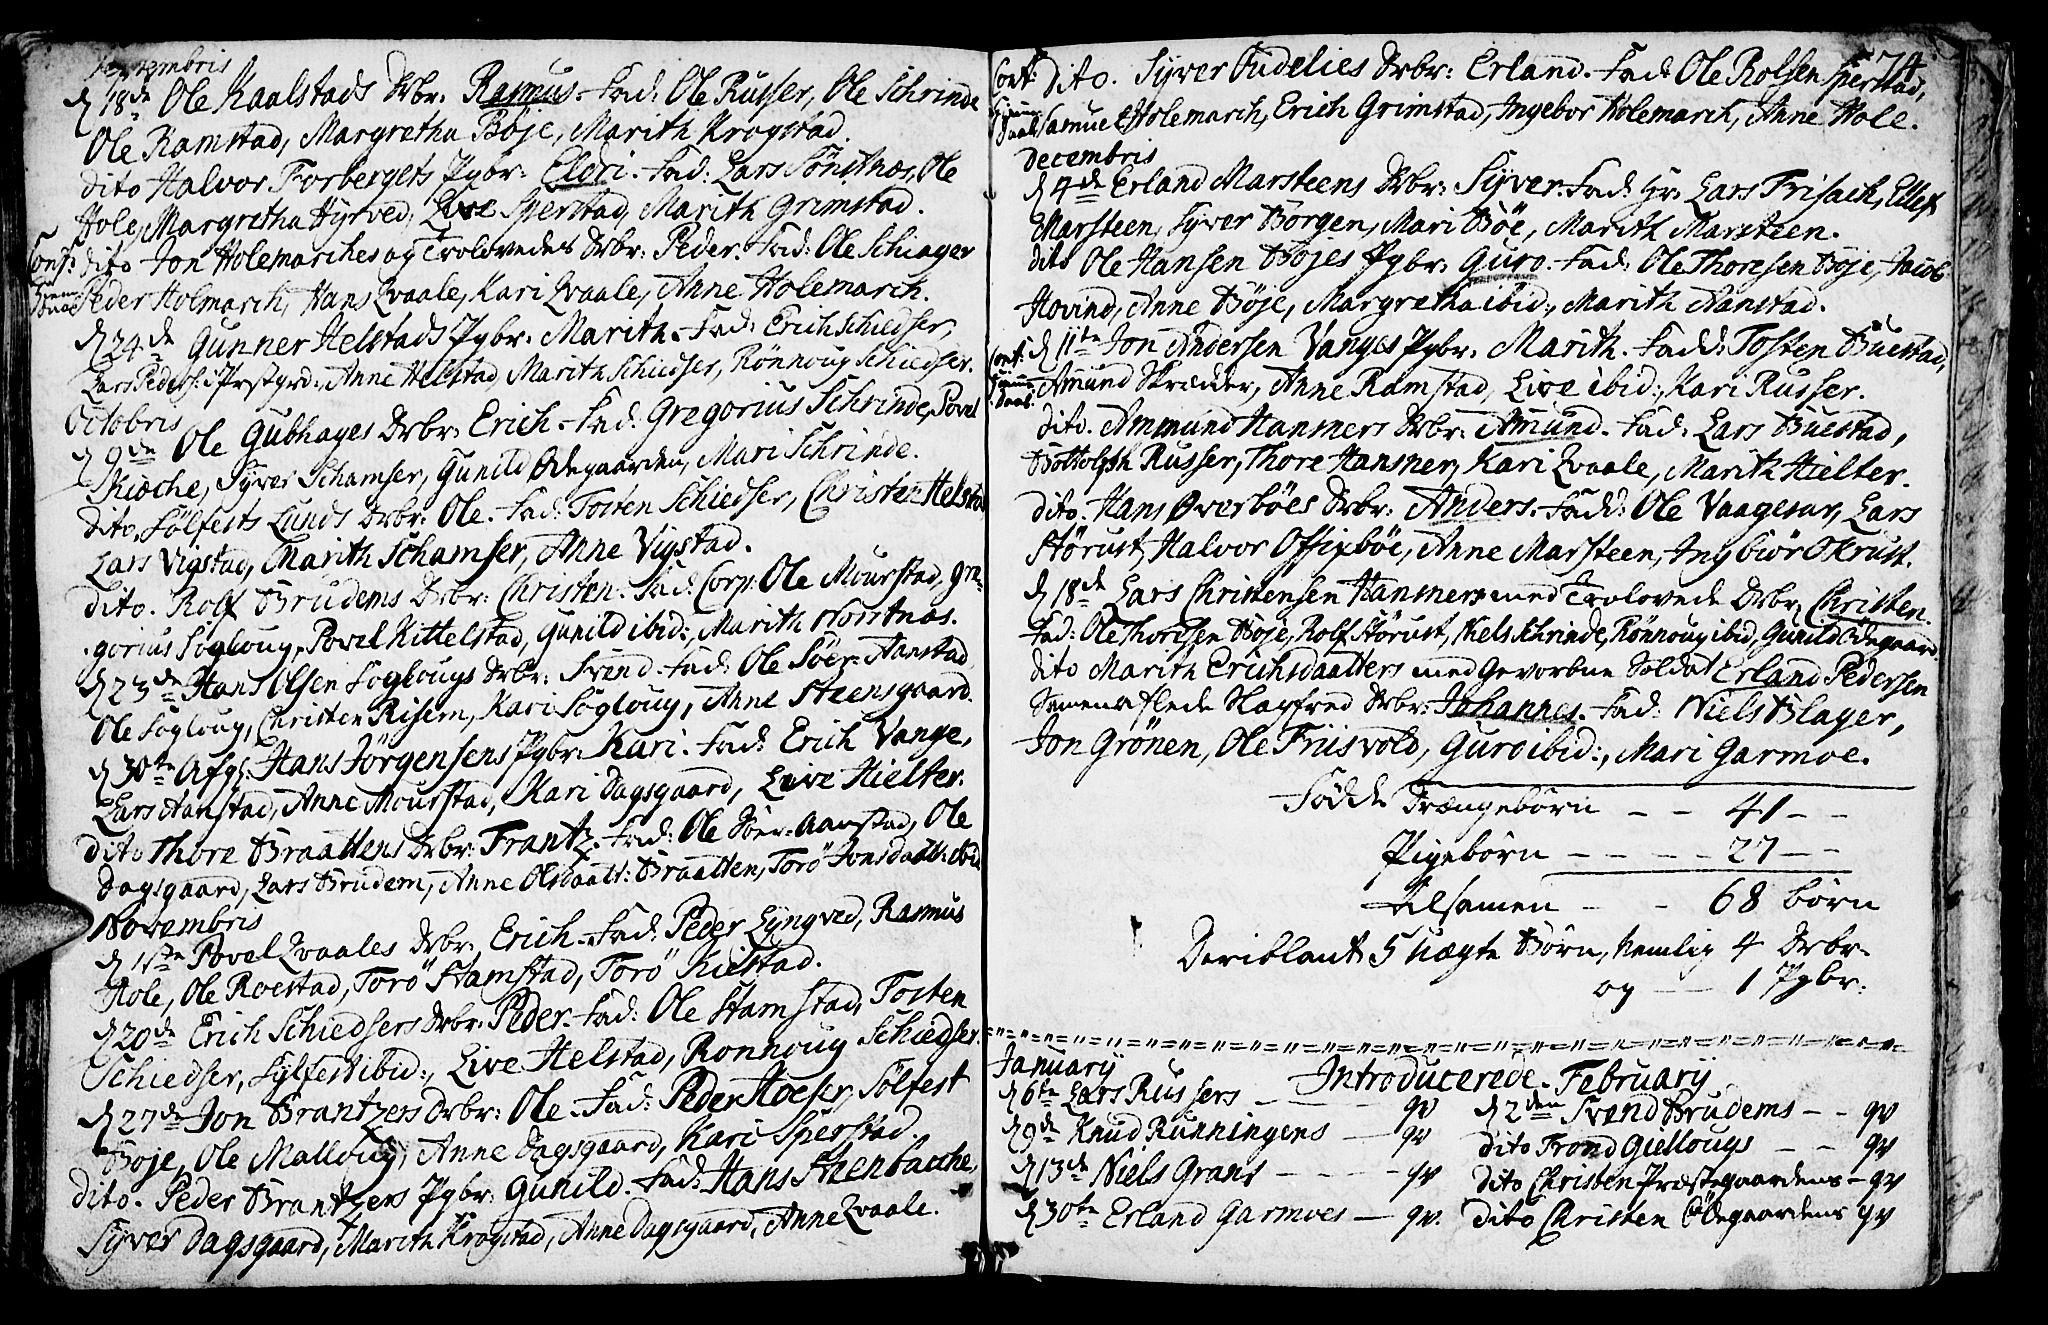 Septembris
d 18de Ole Kaalstads Drbr: Rasmus. Fad: Ole Russer, Ole Schrinde
Ole Ramstad, Margretha Böje, Marith Krogstad.
dito Halvor Forbergets Pgbr: Eldri. Fad: Lars Sönstnæs, Ole
Hole, Margretha Hyrved, Live Sperstad, Marith Grimstad.
Conf: dito Jon Holemarches og Trolovedes Drbr: Peder. Fad: Ole Schiager
Peder Holmarch, Hans Qvaale, Kari Qvaale, Anne Holemarch.
d 24de Gunner Helstads Pgbr: Marith. Fad: Erich Schiedser,
Lars Peders: i Præstgrd: Anne Helstad, Marith Schiedser, Rönnoug Schiedser.
Octobris
d 9de Ole Gubhages Drbr: Erich. Fad: Gregorius Schrinde, Povel
Kioche, Syver Schamser, Gunild Ödegaarden, Mari Schrinde.
Dito, Sölfests Lunds Drbr: Ole. Fad: Tosten Schiedser, Christen Helstad,
Lars Vigstad, Marith Schamser, Anne Vigstad.
dito. Rolf Brudems Drbr: Christen. Fad: Corp: Ole Mourstad, Gre-
gorius Sögloug, Povel Kittelstad, Gunild ibid:, Marith Norstnæs.
d 23de Hans Olsen Söglougs Drbr: Svend. Fad: Ole Söer-Aanstad
Ole Sögloug, Christen Risem, Kari Sögloug, Anne Steensgaard.
d 30te Afg: Hans Jörgensens Pgbr: Kari. Fad: Erich Vange,
Lars Aanstad, Anne Mourstad, Kari Dagsgaard, Live Hielter.
dito Thore Braattens Drbr: Frantz. Fad: Ole Söer-Aanstad, Ole
Dagsgaard, Lars Brudem, Anne Olsdaatt: Braatten, Torö Jonsdaatt: ibid
Novembris
d 11te Povel Qvaales Drbr: Erich. Fad: Peder Lyngved, Rasmus
Hole, Ole Roestad, Torö Stamstad, Torö Kiestad.
d 20de Erich Schiedsers Drbr: Peder. Fad: Ole Stamstad, Tosten
Schiedser, Sylfest ibid:, Live Helstad, Ronnoug Schiedser.
d 27de Jon Brantzers Drbr: Ole. Fad: Peder Hoeser, Sölfest
Böje, Ole Malloug, Anne Dagsgaard, Kari Sperstad
dito. Peder Brantzers Pgbr: Gunild. Fad: Hans Steenbacche,
Syver Dagsgaard, Marith Krogstad, Anne Dagsgaard, Anne Qvaale.
74
Conf: dito. Syver Oudelies Drbr: Erland. Fad: Ole Rolsen Sperstad,
Samuel Holemarch, Erich Grimstad, Ingebor Holemarch, Anne Hole.
Decembris
d 4de Erland Marsteens Drbr: Syver. Fad: Hr: Lars Frisach, Ellef
Marsteen, Syver Borgen, Mari Böe, Marith Marsteen.
dito Ole Hansen Böjes Pgbr: Guro. Fad: Ole Thoresen Böje, Jacob
Hovind, Anne Böje, Margretha ibid:, Marith Aanstad.
Conf: d 11te Jon Andersen Vanges Pgbr: Marith. Fadd: Tosten Buestad,
Amund Skrædder, Anne Ramstad, Live ibid:, Kari Russer.
dito. Ammund Hansners Drbr: Amund. Fad: Lars Buestad,
Bottolph Russer, Thore Hansner, Kari Qvaale, Marith Hielter.
dito. Hans Overböes Drbr: Anders. Fadd: Ole Vaagesar, Lars
Störust, Halvor Offigsböe, Anne Marsteen, Ingbiör Okrust.
d 18de Lars Christensen Hansners med Trolovede Drbr: Christen.
Fad: Ole Thoresen Böje, Rolf Störust, Niels Schrinde, Rönnoug ibid, Gunild Ödegaard.
dito Marith Erichsdaatters med Gevorbne Soldat Erland Pedersen
Semen aflede Slagfred Drbr: Johannes. Fad: Niels Blager,
Jon Grönen, Ole Friisvold, Guro ibid:, Mari Garmoe.
Födde Drængebörn - - 41 - -
Pigebörn - - - - - 27 - -
tilsamen - - 68 börn
Deriblant 5 uægte Börn, Nemlig 4 Drbr-
og - - 1 Pgbr:
Introducerede.
January
d 6te Lars Russers - - qv
d 9de Knud Runningens - qv
d 13de Niels Grans - - - - qv
d 30te Erland Garmoes - qv.
February
d 2den Svend Brudems - - qv
dito Trond Giellougs - - - qv
dito Christen Præstegaardens - qv
dito Christen Ödegaardens qv